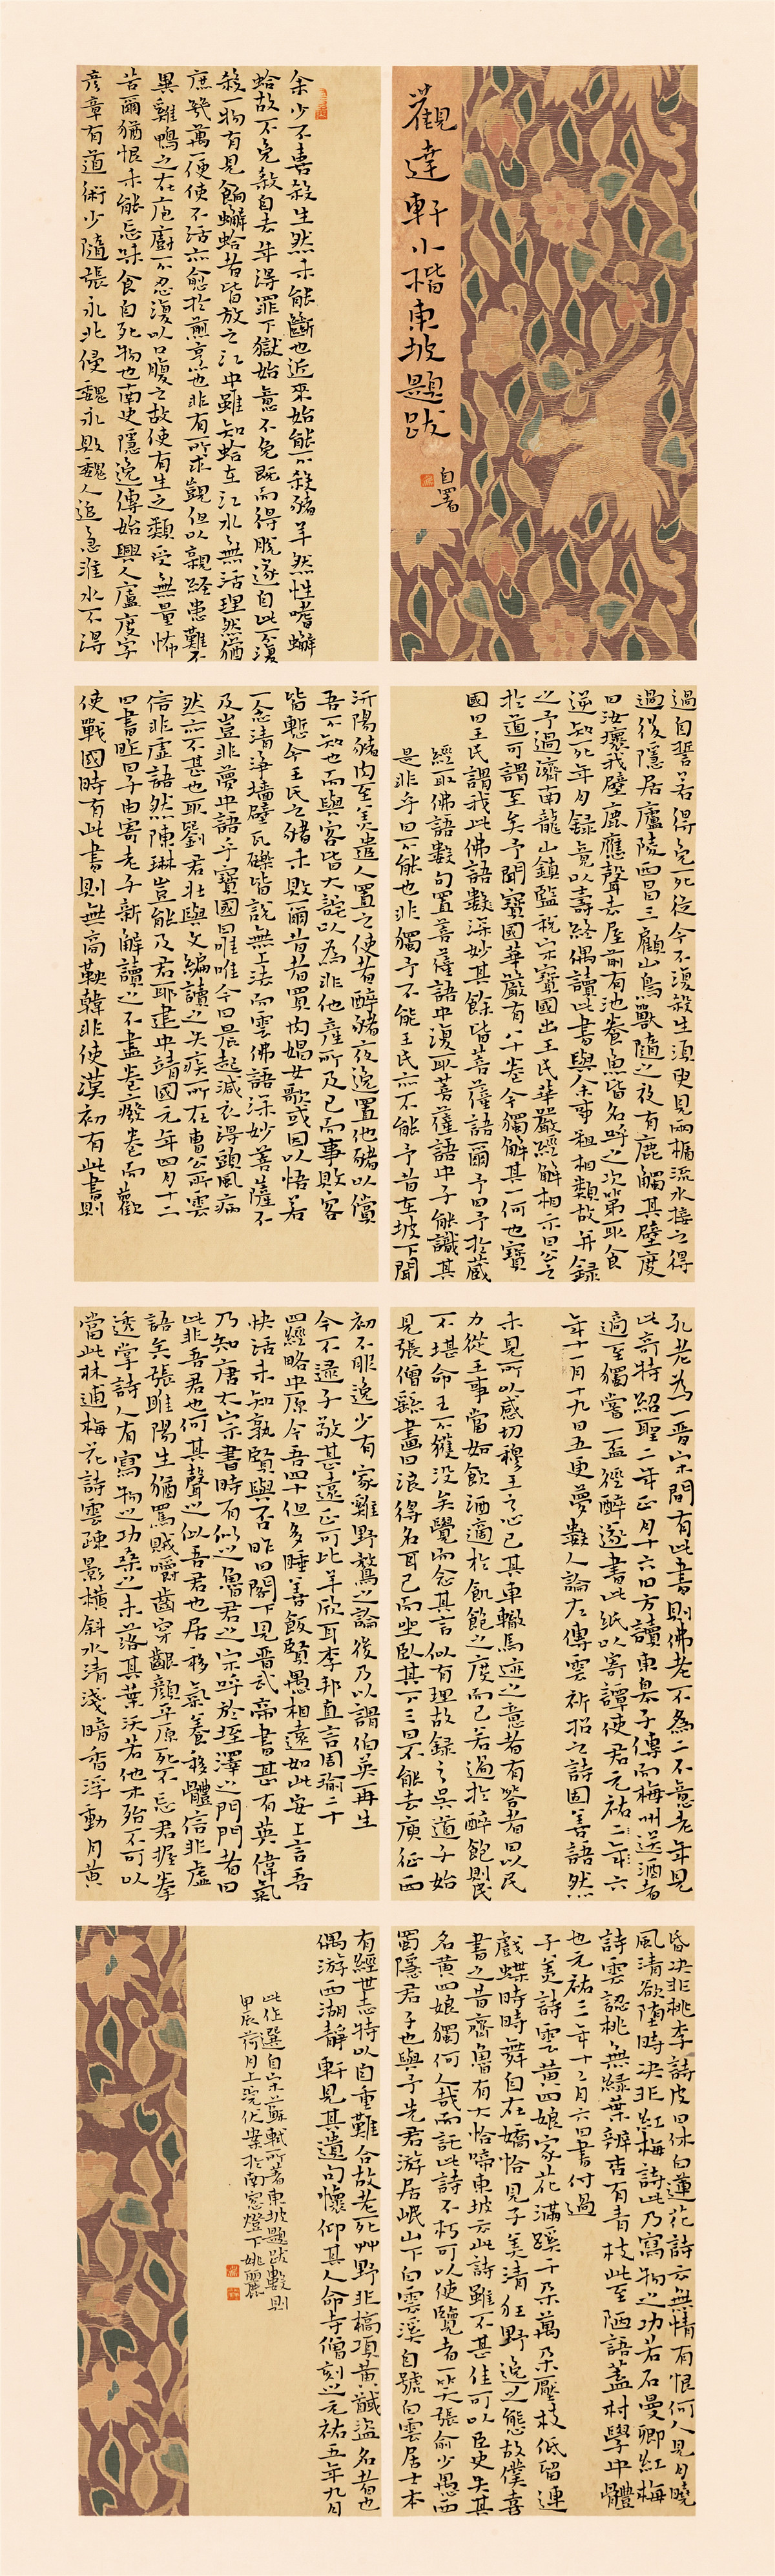 觀達軒小楷東坡題跋
自署
余少不喜殺生然未能斷也近來始能不殺豬羊然性嗜蠏
蛤故不免殺自去年得罪下獄始意不免既而得脫遂自此不復
殺一物有見餉蠏蛤者皆放之江中雖知蛤在江水無活理然猶
庶幾萬一便使不活亦愈於煎烹也非有所求覬但以親經患難不
異雞鴨之在庖廚不忍復以口腹之故使有生之類受無量怖
苦爾猶恨未能忘味食自死物也南史隱逸傳始興人廬度字
彥章有道術少隨張永北侵魏永敗魏人追急淮水不得
過自誓若得免死從今不復殺生須臾見兩楯流水接之得
過後隱居廬陵西昌三顧山鳥獸隨之夜有鹿觸其壁度
曰汝壞我壁鹿應聲去屋前有池養魚皆名呼之次第取食
逆知死年月錄竟以壽終偶讀此書與余事粗相類故并錄
之予過濟南龍山鎮監稅宋寶國出王氏華嚴經解相示曰公之
於道可謂至矣予聞寶國華嚴有八十卷今獨解其一何也寶
國曰王氏謂我此佛語數深妙其餘皆菩薩語爾予曰予於藏
經取佛語數句置菩薩語中復取菩薩語中子能識其
是非乎曰不能也非獨予不能王氏亦不能予昔在坡下聞
沂陽豬肉至美遣人置之使者醉豬夜逸置他豬以償
吾不知也而與客皆大詫以為非他產所及已而事敗客
皆慙今王氏之豬未敗爾昔者買肉娼女歌或因以悟若
一念清淨墻壁瓦礫皆說無上法而雲佛語深妙菩薩不
及豈非夢中語乎寶國曰唯唯今日晨起減衣得頭風病
然亦不甚也取劉君壯輿文編讀之失疾所在曹公所雲
信非虛語然陳琳豈能及君耶建中靖國元年四月十二
日書昨日子由寄老子新解讀之不盡卷廢卷而歎
使戰國時有此書則無商鞅韓非使漢初有此書則
孔老為一晉宋間有此書則佛老不為二不意老年見
此奇特紹聖二年正月十六日方讀東皋子傳而梅州送酒者
適至獨嘗一盃徑醉遂書此紙以寄譚使君元祐二年六
年十一月十九日五更夢數人論左傳雲祈招之詩固善語然
未見所以感切穆王之心已其車轍馬迹之意者有答者曰以民
力從王事當如飲酒適於飢飽之度而已若過於醉飽則民
不堪命王不獲沒矣覺而念其言似有理故錄之吳道子始
見張僧繇畫曰浪得名耳已而坐臥其下三日不能去庾征西
初不服逸少有家雞野鶩之論後乃以謂伯英再生
今不逮子敬甚遠正可比羊欣耳李邦直言周瑜二十
四經略中原今吾四十但多睡善飯賢愚相遠如此安上言吾
快活未知孰賢與否昨日閣下見晉武帝書甚有英偉氣
乃知唐太宗書時有似之魯君之宋呼於垤澤之門門者曰
此非吾君也何其聲之似吾君也居移氣養移體信非虛
語矣張睢陽生猶罵賊嚼齒穿齦顏平原死不忘君握拳
透掌詩人有寫物之功桑之未落其葉沃若他木殆不可以
當此林逋梅花詩雲疎影橫斜水清淺暗香浮動月黃
昏決非桃李詩皮日休白蓮花詩云無情有恨何人見月曉
風清欲墮時決非紅梅詩此乃寫物之功若石曼卿紅梅
詩雲認桃無綠葉辨杏有青枝此至陋語蓋村學中體
也元祐三年十二月六日書付過
子美詩雲黃四娘家花滿蹊千朵萬朵壓枝低留連
戲蝶時時舞自在嬌恰見子美清狂野逸之態故僕喜
書之昔齊魯有大恰啼東坡云此詩雖不甚佳可以臣史失其
名黃四娘獨何人哉而託此詩不朽可以使覽者一笑張俞少愚西
蜀隱君子也與予先君游居岷山下白雲溪自號白雲居士本
有經世志特以自重難合故老死艸野非槁項黃馘盜名者也
偶游西湖靜軒見其遺句懷仰其人命寺僧刻之元祐五年九月
此作選自宋蘇軾所著東坡題跋數則
甲辰荷月上浣伏案於南窓燈下姚麗